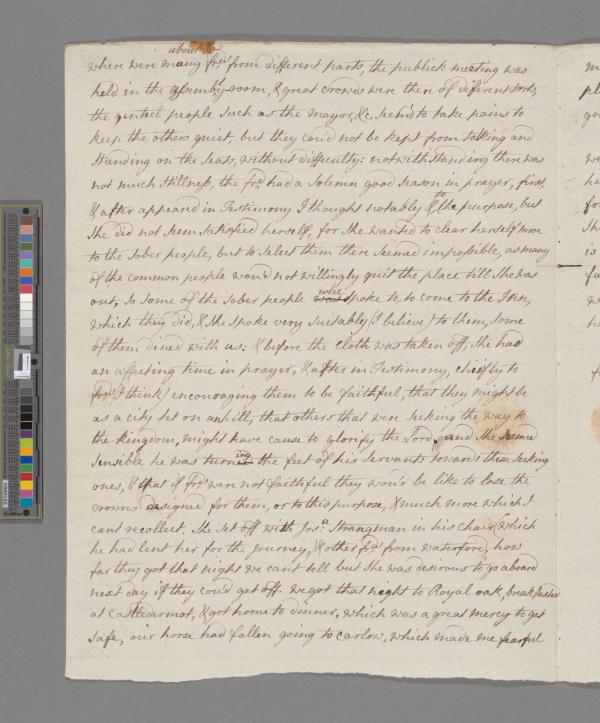 about 50
where were many frds from different parts, the publick meeting was
held in the assembly-room, & great crowds were there of different sorts,
the genteel people such as the mayor, &c. seem'd to take pains to
keep the others quiet, but they cou'd not be kept from talking and
standing on the seats, without difficulty: notwithstanding there was
not much stillness, the frd. had a solemn good season in prayer, first,
& after appeared in Testimony I thought notably to the purpose, but
she did not seem satisfied herself, for she wanted to clear herself more
to the sober people, but to select them there seemed impossible, as many
of the common people wou'd not willingly quit the place till she was
out, so some of the sober people were spoke to, to come to the Inn,
which they did, & she spoke very suitably (I believe) to them, some
of them dined with us: & before the cloth was taken off, she had
an affecting time in prayer, & after in Testimony, chiefly to
frds (I think) encouraging them to be faithful, that they might be
as a city set on an hill, that others that were seeking the way to
the kingdom, might have cause to glorify the Lord, and she seemed
sensible he was turning the feet of his servants towards these seeking
ones, & that if frds were not faithful they wou'd be like to lose the
crowns designed for them, or to this purpose, & much more which I
cant recollect. She set off with Josa. Strangman in his chair, which
he had lent her for the journey, & other frds from waterford, how
far they got that night we cant tell but she was desirous to go aboard
next day if they cou'd get off. we got that night to Royal oak, breakfasted
at Castlearmot, & got home to dinner, which was a great mercy to get
safe, our horse had fallen going to carlow, which made me fearful